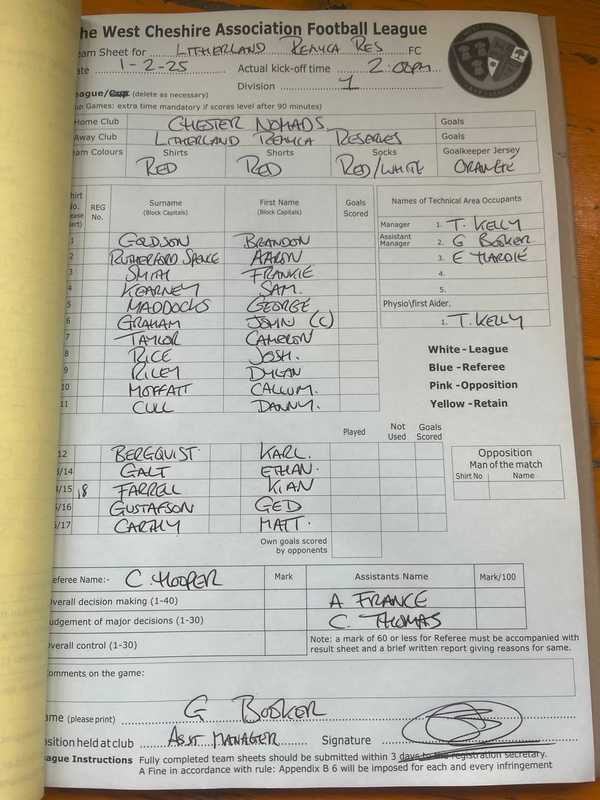 he West Cheshire Association Football League
eam Sheet for LITHERLAND REMYCA RES FC
ate 1-2-25 Actual kick-off time 2:00pm
Division 1
eague/Cup (delete as necessary)
up Games: extra time mandatory if scores level after 90 minutes)
Home Club CHESTER NOMADS Goals
Away Club LITHERLAND REMYCA RESERVES Goals
eam Colours Shirts Shorts Socks Goalkeeper Jersey
RED RED RED/WHITE ORANGE
hirt No. REG No. Surname (Block Capitals) First Name (Block Capitals) Goals Scored Names of Technical Area Occupants
Manager 1. T. KELLY
1 GOLDSON BRANDON Assistant Manager 2. G BOOKER
2 RUTHERFORD SPENCE AARON 3. E HARDIE
3 SMITH FRANKIE 4.
4 KEARNEY SAM. 5.
5 MADDOCKS GEORGE Physio\first Aider.
6 GRAHAM JOHN (C) 1. T. KELLY
7 TAYLOR CAMERON
8 RICE JOSH. White - League
9 RILEY DYLAN Blue - Referee
10 MOFFATT CALLUM. Pink - Opposition
11 CULL DANNY. Yellow - Retain
Played Not Used Goals Scored
12 BERGQUIST. KARL. Opposition
3/14 GALT ETHAN. Man of the match
4/15 18 FARRELL KIAN Shirt No Name
5/16 GUSTAFSON GED
6/17 CARTHY MATT.
Own goals scored by opponents
eferee Name:- C. HOOPER Mark Assistants Name Mark/100
verall decision making (1-40) A FRANCE
udgement of major decisions (1-30) C. THOMAS
verall control (1-30) Note: a mark of 60 or less for Referee must be accompanied with result sheet and a brief written report giving reasons for same.
omments on the game:
ame (please print) G BOOKER
osition held at club ASST MANAGER Signature
eague Instructions Fully completed team sheets should be submitted within 3 days to the registration secretary.
A Fine in accordance with rule: Appendix B 6 will be imposed for each and every infringement